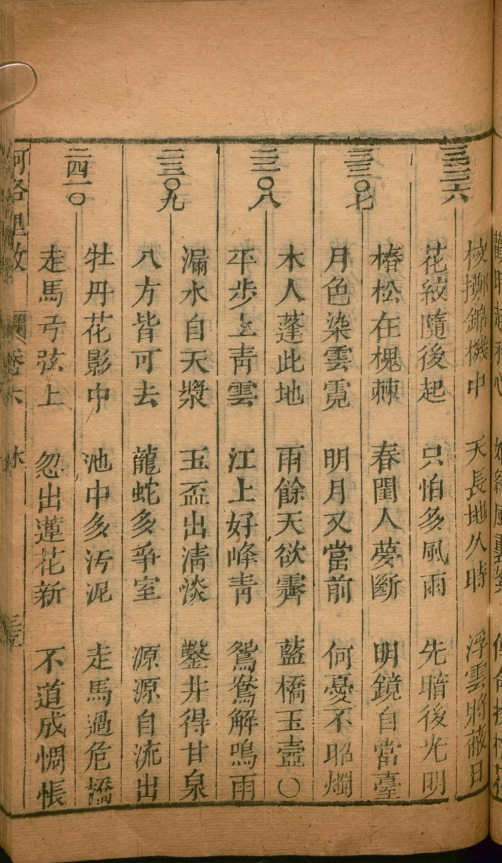 梭擲錦機中 天長地久時 浮雲將蔽日
三三〇六
花紋隨後起 只怕多風雨 先暗後光明
椿松在槐棘 春閨人夢斷 明鏡自當臺
三三〇七
月色染雲霓 明月又當前 何憂不昭燭
木人蓬此地 雨餘天欲霽 藍橋玉壼〇
三三〇八
平步上青雲 江上好峰青 鴛鴦解鳴雨
漏水自天漿 玉盃出清淡 鑿井得甘泉
三三〇九
八方皆可去 龍蛇多爭室 源源自流出
牡丹花影中 池中多汚泥 走馬過危橋
二四一〇
走馬弓弦上 忽出蓮花新 不道成惆悵
河洛理數 卷六